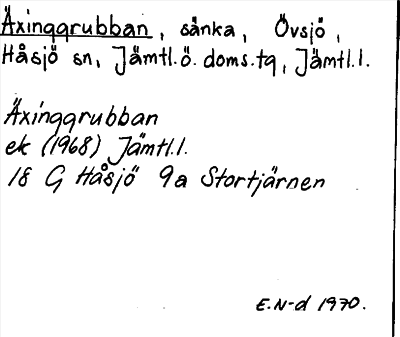 Äxinggrubban, sänka, Övsjö,
Håsjö sn, Jämtl.ö. doms.tg, Jämtl.l.
Äxinggrubban
ek (1968) Jämtl.l.
18 G Håsjö 9a Stortjärnen
E.N-d 1970.